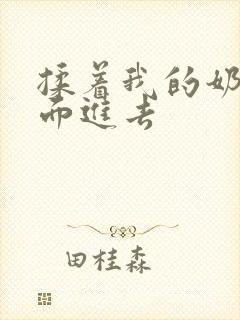 揉着我的奶
而進去
田桂森